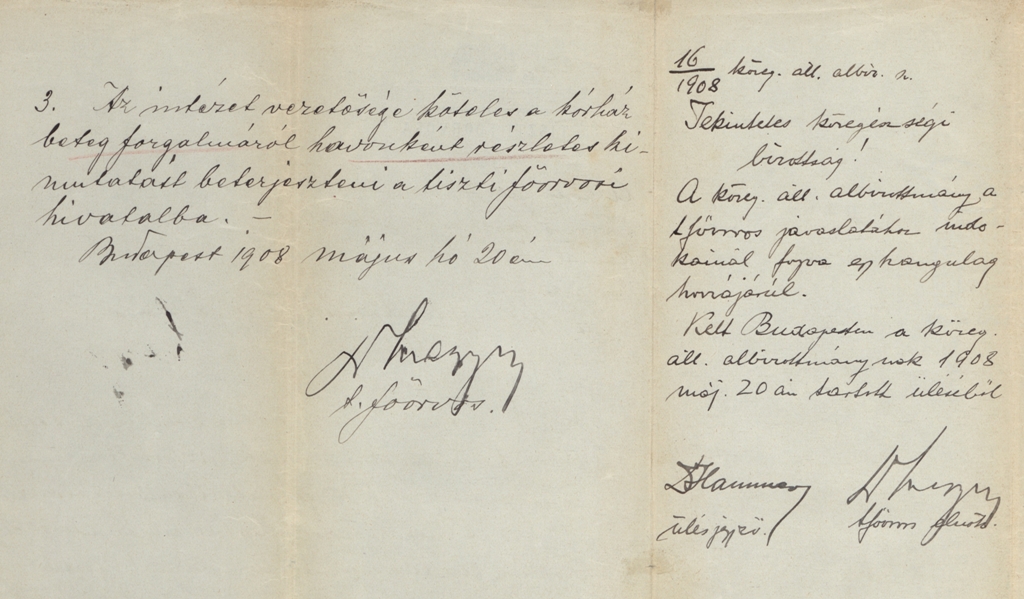 3. Az intézet vezetősége köteles a kórház
beteg forgalmáról havonként részletes ki-
mutatást beterjeszteni a tiszti főorvosi
hivatalba. –
Budapest 1908 május hó 20 én
t. főorvos.
16/1908 közeg. áll. albiz. sz.
Tekintetes közegészségi
bizottság!
A közeg. áll. albizottmány a
tfőorvos javaslatához indo-
kainál fogva egyhangulag
hozzájárúl.
Kelt Budapesten a közeg.
áll. albizottmánynak 1908
máj. 20 án tartott üléséből
ülésjegyző. tfőorvos